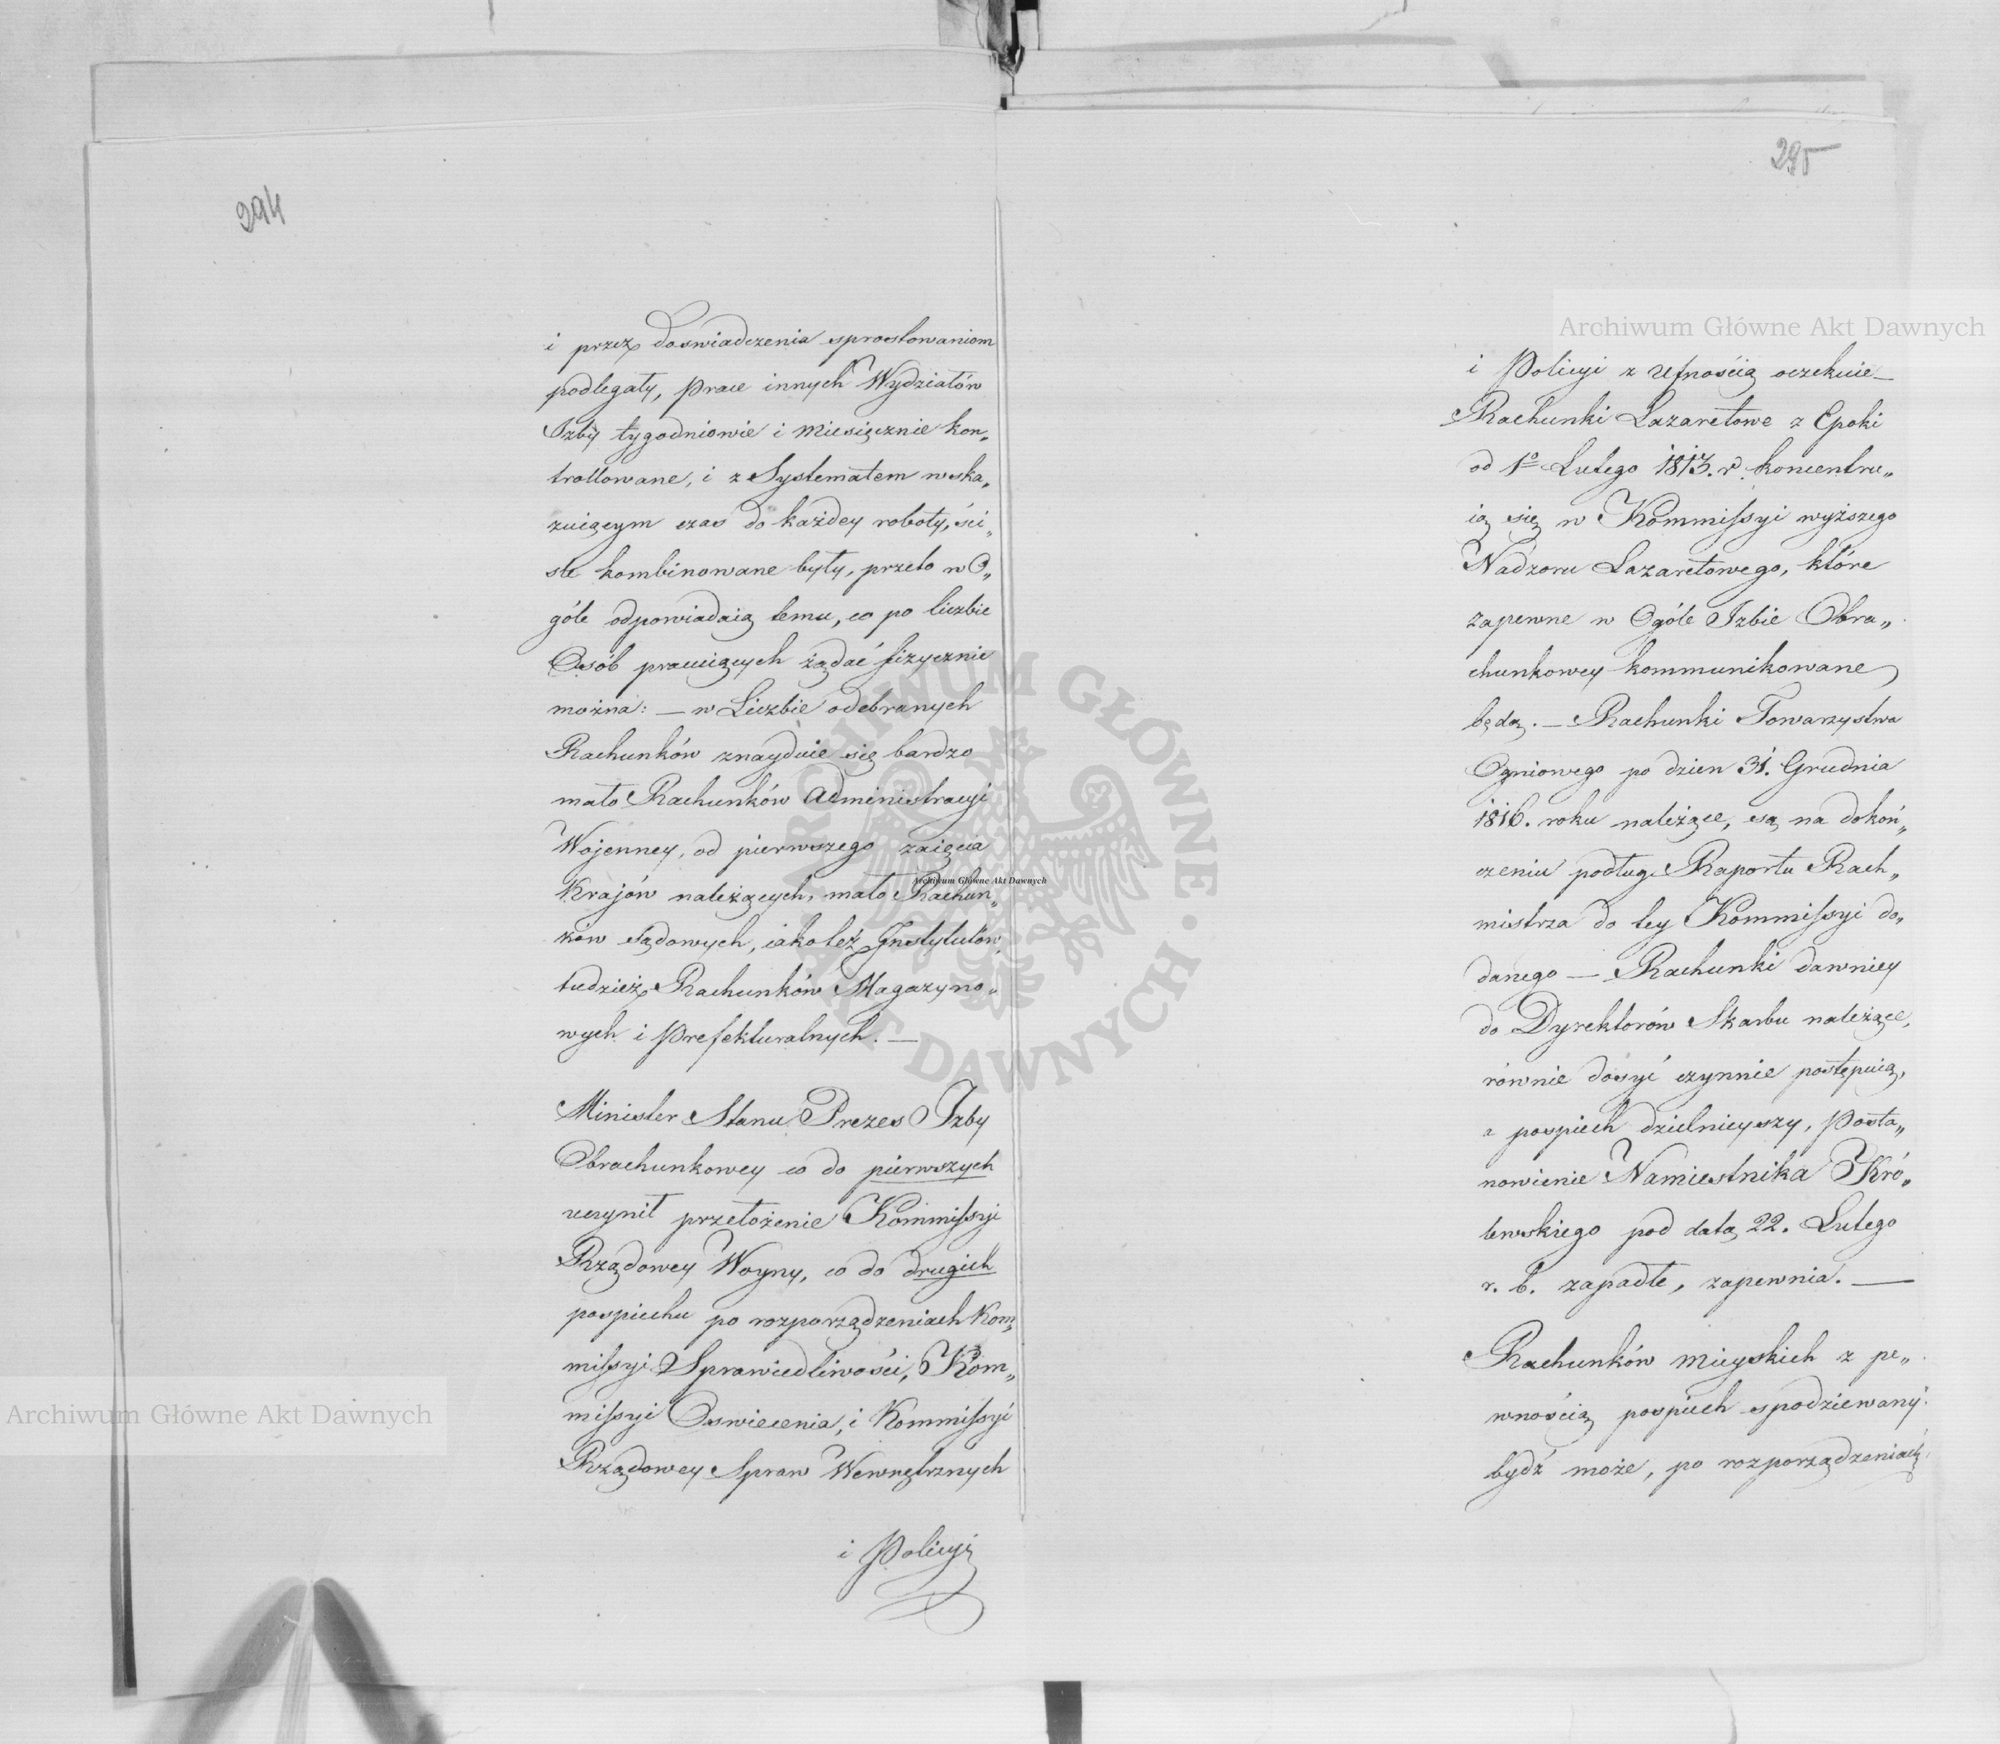 294
i przez doswiadczenia sprostowaniom
podlegały, prace innych Wydziałów
Izby tygodniowie i miesięcznie kon„
trollowane, i z Systematem wska„
zuiącym czas do każdey roboty, ści„
sle kombinowane były, przeto w O„
góle odpowiadaią temu, co po liczbie
Osób pracuiących żądać fizycznie
można: — w Liczbie odebranych
Rachunków znayduie się bardzo
mało Rachunków Administracyi
Wojenney, od pierwszego zaięcia
Krajów należących, mało Rachun„
ków Sądowych, iakoteż Instytutów,
tudzież Rachunków Magazyno„
wych i Prefekturalnych. —
Minister Stanu Prezes Izby
Obrachunkowey co do pierwszych
uczynił przełożenie Kommissyi
Rządowey Woyny, co do drugich
pospiechu po rozporządzeniach Kom„
missyi Sprawiedliwości, Kom„
missyi Oswiecenia, i Kommissyi
Rządowey Spraw Wewnętrznych
i Policyi
295
i Policyi z Ufnością oczekuie —
Rachunki Lazaretowe z Epoki
od 1º Lutego 1813. r. koncentru„
ią się w Kommissyi wyższego
Nadzoru Lazaretowego, które
zapewne w Ogóle Izbie Obra„
chunkowey kommunikowane
będą. — Rachunki Towarzystwa
Ogniowego po dzien 31. Grudnia
1816. roku należące, są na dokoń„
czeniu podług Raportu Rach„
mistrza do tey Kommissyi do„
danego — Rachunki dawniey
do Dyrektorów Skarbu należące,
równie dosyć czynnie postępuią,
a pospiech dzielnieyszy, Posta„
nowienie Namiestnika Kró„
lewskiego pod datą 22. Lutego
r. b. zapadłe, zapewnia. —
Rachunków mieyskich z pe„
wnością pospiech spodziewany
bydź może, po rozporządzeniach
Archiwum Główne Akt Dawnych
Archiwum Główne Akt Dawnych
Archiwum Główne Akt Dawnych
ARCHIWUM GŁÓWNE AKT DAWNYCH